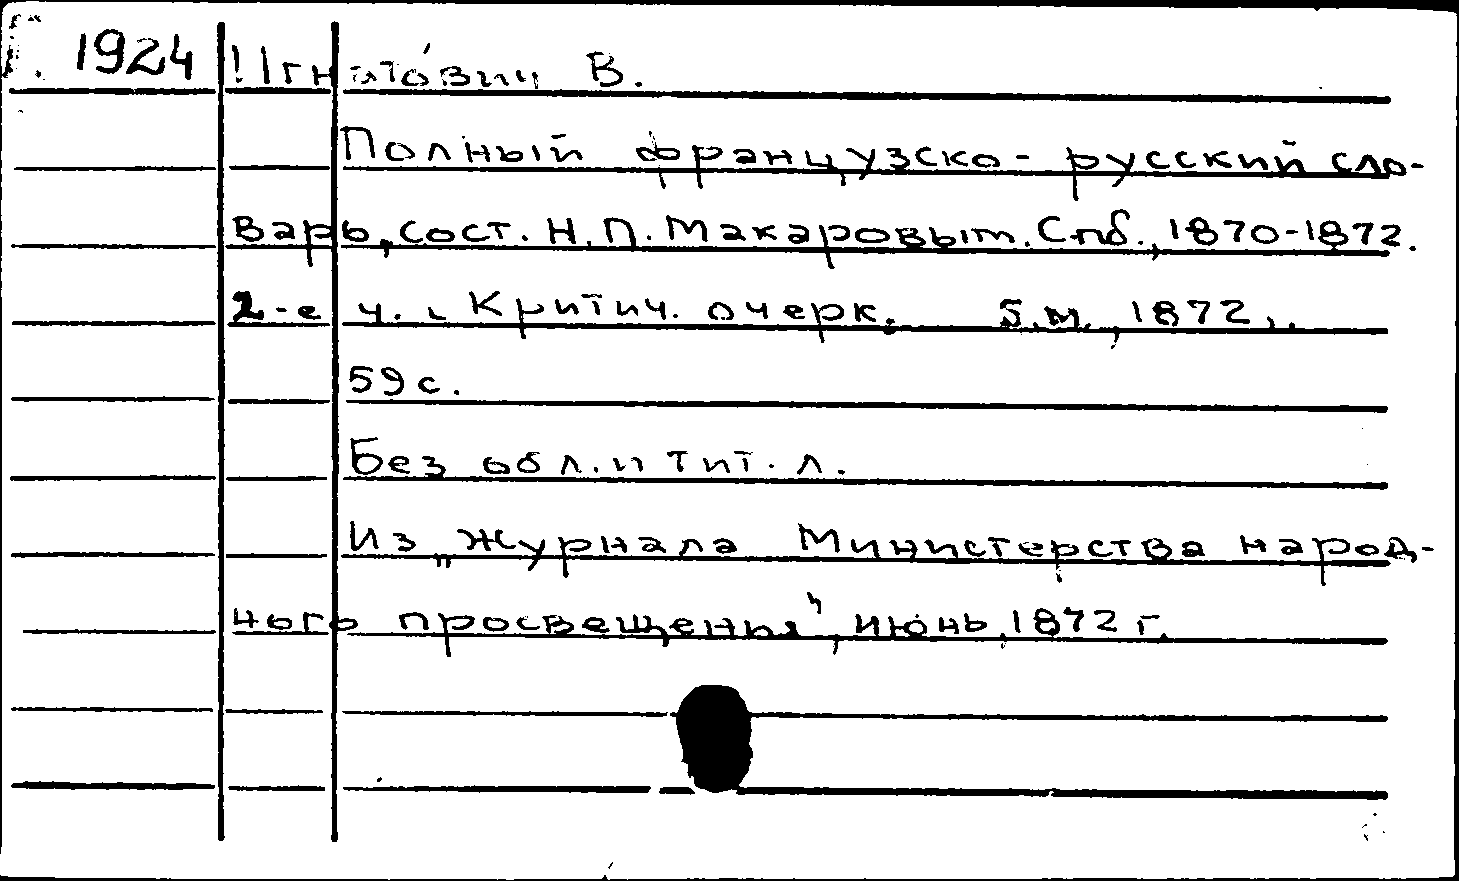 1924 Игнатович В.
Полный французско-русский сло-
варь, сост. Н.П. Макаровым. Спб., 1870-1872.
2-е ч. Критич. очерк. Б.м., 1872.
59 с.
Без обл. и тит. л.
Из „Журнала Министерства народ-
ного просвещения", июнь, 1872 г.